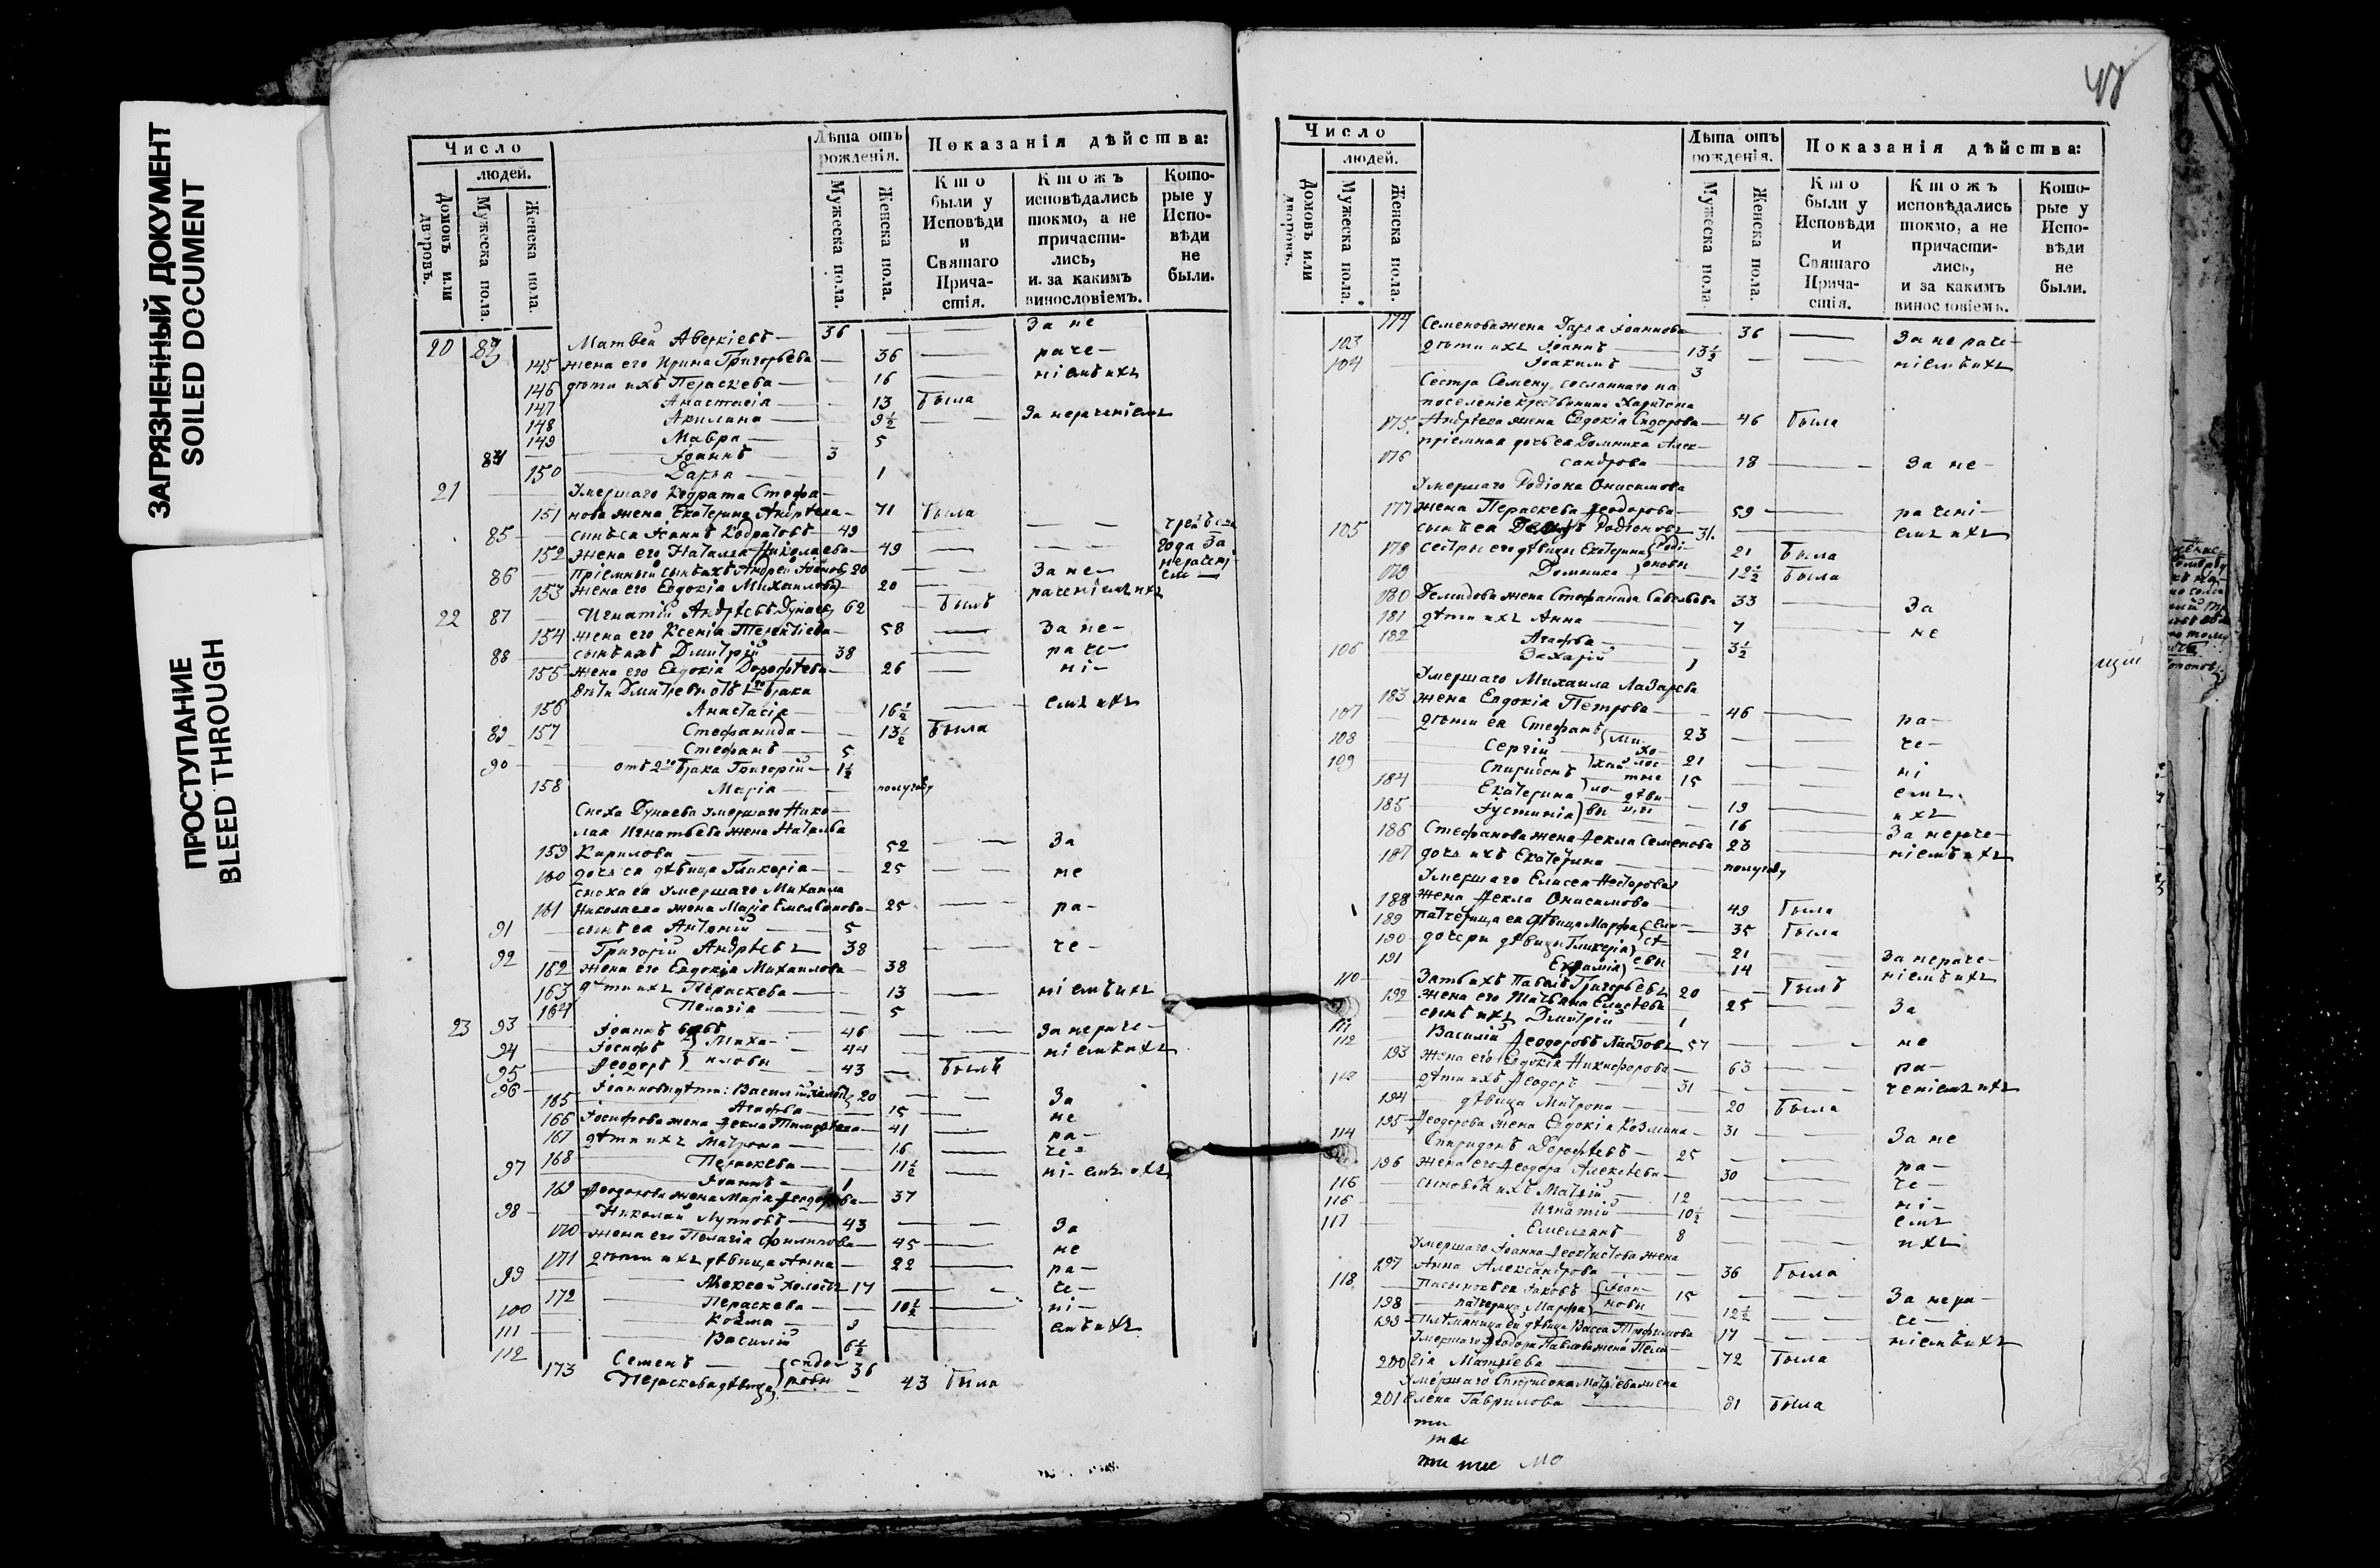 ЗАГРЯЗНЕННЫЙ ДОКУМЕНТ
SOILED DOCUMENT
ПРОСТУПАНИЕ
BLEED THROUGH
Число
людей.
Домовъ или дворовъ.
Мужеска пола.
Женска пола.
Лѣта отъ рожденія.
Мужеска пола.
Женска пола.
Показанія дѣйства:
Кто были у Исповѣди и Святаго Причастія.
Ктожъ исповѣдались токмо, а не причастились, и за какимъ винословіемъ.
Которые у Исповѣди не были.
20 Матвей Аверкіевъ 36 За не
145 жена его Ирина Григорьева 36 раче-
146 дѣти ихъ Пераскева 16 ніемъ ихъ
147 Анастасія 13 была
148 Акилина 9½ За нераченіемъ
149 Мавра 5
84 Іоаннъ 3
150 Дарья 1
21 Умершаго Кодрата Стефа-
151 нова жена Екатерина Андреева 71 была
85 сынъ ея Іоаннъ Кодратовъ 49
152 жена его Наталья Николаева 49 года за
86 Пріемный сынъ ихъ Андрей 20 За не
153 жена его Евдокія Михаилова 20 раченіемъ ихъ
22 87 Игнатій Андреевъ Дунаевъ 62 былъ
154 жена его Ксенія Терентіева 58 За не-
88 сынъ ихъ Дмитрій 38 раче-
155 жена его Евдокія Дорофѣева 26 ні-
Дѣти Дмитревы отъ 1го брака
156 Анастасія 16½ емъ ихъ
157 Стефанида 13½ была
89 Стефанъ 5
90 отъ 2го брака Григорій 1½
158 Марія полугоду
Сноха Дунаева умершаго Нико-
лая Игнатьева жена Наталья
159 Кирилова 52 За
160 дочь ея дѣвица Гликерія 25 не
Сноха ея умершаго Михаила
161 Николаева жена Марія Емельянова 25 ра-
91 сынъ ея Антоній 5
92 Григорій Андреевъ 38 че-
162 жена его Евдокія Михаилова 38
163 дѣти ихъ Пераскева 13 ніемъ ихъ
164 Пелагія 5
23 93 Іоаннъ 46 За нераче-
94 Іосифъ Миха- 44 ніемъ ихъ
95 Ѳеодоръ иловы 43 былъ
96 Іоанновы дѣти: Василій 20
165 Агафья 15 За
166 Іосифова жена Ѳекла Тимофеева 41 не
167 дѣти ихъ Матрона 16 ра-
168 Пераскева 11½ че-
97 Іоаннъ 1 ні-емъ ихъ
169 Ѳеодорова жена Марія Ѳеодорова 37
98 Николай Лупповъ 43 За
170 жена его Пелагія Филипова 45 не
171 дѣти ихъ дѣвица Анна 22 ра-
99 Алексей холостъ 17 че-
172 Пераскева 10½ ні-
100 Козма 9 емъ ихъ
111 Василій 6½
112 Семенъ Сидо- 36
173 Пераскева дѣвица ровы 43 была
Число
людей.
Домовъ или дворовъ.
Мужеска пола.
Женска пола.
Лѣта отъ рожденія.
Мужеска пола.
Женска пола.
Показанія дѣйства:
Кто были у Исповѣди и Святаго Причастія.
Ктожъ исповѣдались токмо, а не причастились, и за какимъ винословіемъ.
Которые у Исповѣди не были.
174 Семенова жена Дарья Іоаннова 36 За нераче-
103 дѣти ихъ Іоаннъ 13½ ніемъ ихъ
104 Іоакимъ 3
Сестра Семену сосланнаго на
поселеніе крестьянина Харитона
175 Андреева жена Евдокія Сидорова 46 была
пріемная дочь ея Домника Алек-
176 сандрова 18 За не-
Умершаго Родіона Онисимова
177 жена Пераскева Ѳеодорова 59 рачені-
105 сынъ ея Родіоновъ 31 емъ ихъ
178 сестры его дѣвицы Екатерина Роді- 21 была
179 Домника оновы 12½ была
180 Демидова жена Стефанида Савельева 33 За
181 дѣти ихъ Анна 7 не
182 Агафья 3½
106 Захарій 1
Умершаго Михаила Лазарева
183 жена Евдокія Петрова 46 ра-
107 дѣти ея Стефанъ Ми- 23 че-
108 Сергій хай 21 ні
109 Спиридонъ 15 емъ
184 Екатерина ло- дѣви 19 ихъ
185 Іустинія вы цы 16
186 Стефанова жена Ѳекла Семенова 23 За нераче-
187 дочь ихъ Екатерина полугоду ніемъ ихъ
Умершаго Елисея Несторова
188 жена Ѳекла Онисимова 49 была
189 падчерица ея дѣвица Марфа Ели- 35 была
190 дочери дѣвицы Гликерія се- 21 За нераче-
191 евы 14 ніемъ ихъ
110 Зять ихъ Павелъ Григорьевъ 20 былъ
192 жена его Татьяна Елисеева 25 За
111 сынъ ихъ Дмитрій 1
112 Василій Ѳеодоровъ 57 не
193 жена его Евдокія Никифорова 63 ра-
113 дѣти ихъ Ѳеодоръ 31 ченіемъ ихъ
194 дѣвица Матрона 20 была
195 Ѳеодорова жена Евдокія Козмина 31 За не
114 Спиридонъ Дорофѣевъ 25
196 жена его Ѳеодора Алексеева 30 ра-
115 сыновья ихъ Матвій 12 че-
116 Игнатій 10½ ні-
117 Емеліанъ 8 емъ
Умершаго Іоанна Ѳеоктистова жена ихъ
197 Анна Александрова 36 была
118 Пасынокъ ея Іаковъ Іоан- 15
198 падчерица Марфа новы 12½ За нера-
199 Племянница ей дѣвица Васса Трофимова 17 че-
Умершаго Ѳеодора Павлова жена Пела- ніемъ ихъ
200 гія Матвіева 72 была
Умершаго Спиридона Матвіева жена
201 Елена Гаврилова 81 была